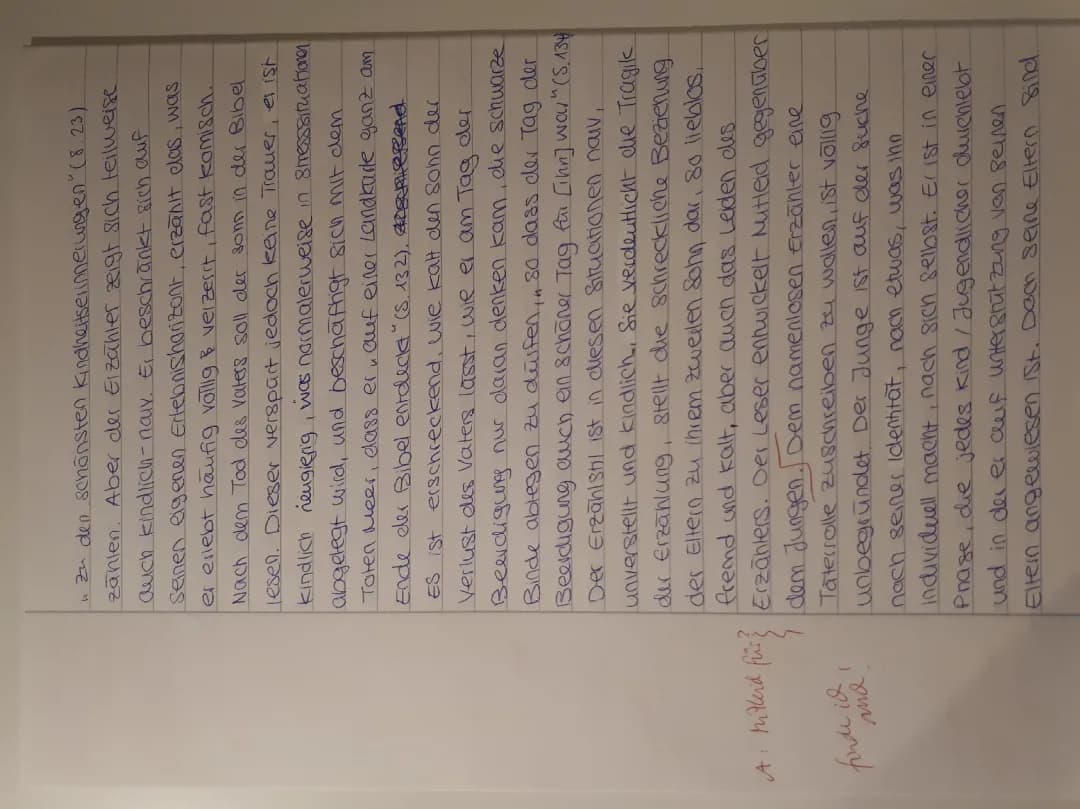 „zu den schönsten Kindheitserinnerungen" (S. 23)
zählen. Aber der Erzähler zeigt sich teilweise
auch kindlich-naiv. Er beschränkt sich auf
seinen eigenen Erlebnishorizont, erzählt das, was
er erlebt häufig völlig verzerrt, fast komisch.
Nach dem Tod des Vaters soll der Sohn in der Bibel
lesen. Dieser verspürt jedoch keine Trauer, er ist
kindlich neugierig, was normalerweise in Stresssituationen
abgelegt wird, und beschäftigt sich mit dem
Toten Meer, dass er „auf einer Landkarte ganz am
Ende der Bibel entdeckt" (S. 132).
Es ist erschreckend, wie kalt den Sohn der
Verlust des Vaters lässt, wie er am Tag der
Beerdigung nur daran denken kann, die schwarze
Binde ablegen zu dürfen, „so dass der Tag der
Beerdigung auch ein schöner Tag für [ihn] war" (S. 134)
Der Erzählstil ist in diesen Situationen naiv,
unverstellt und kindlich. Sie verdeutlicht die Tragik
der Erzählung, stellt die schreckliche Beziehung
der Eltern zu ihrem zweiten Sohn dar, so lieblos,
fremd und kalt, aber auch das Leiden des
Erzählers. Der Leser entwickelt Mitleid gegenüber
dem Jungen. Dem namenlosen Erzähler eine
Täterrolle zuschreiben zu wollen, ist völlig
unbegründet. Der Junge ist auf der Suche
nach seiner Identität, nach etwas, was ihn
individuell macht, nach sich selbst. Er ist in einer
Phase, die jedes Kind / Jugendlicher durchlebt
und in der er auf Unterstützung von seinen
Eltern angewiesen ist. Doch seine Eltern sind
A: Mitleid für?
finde ich